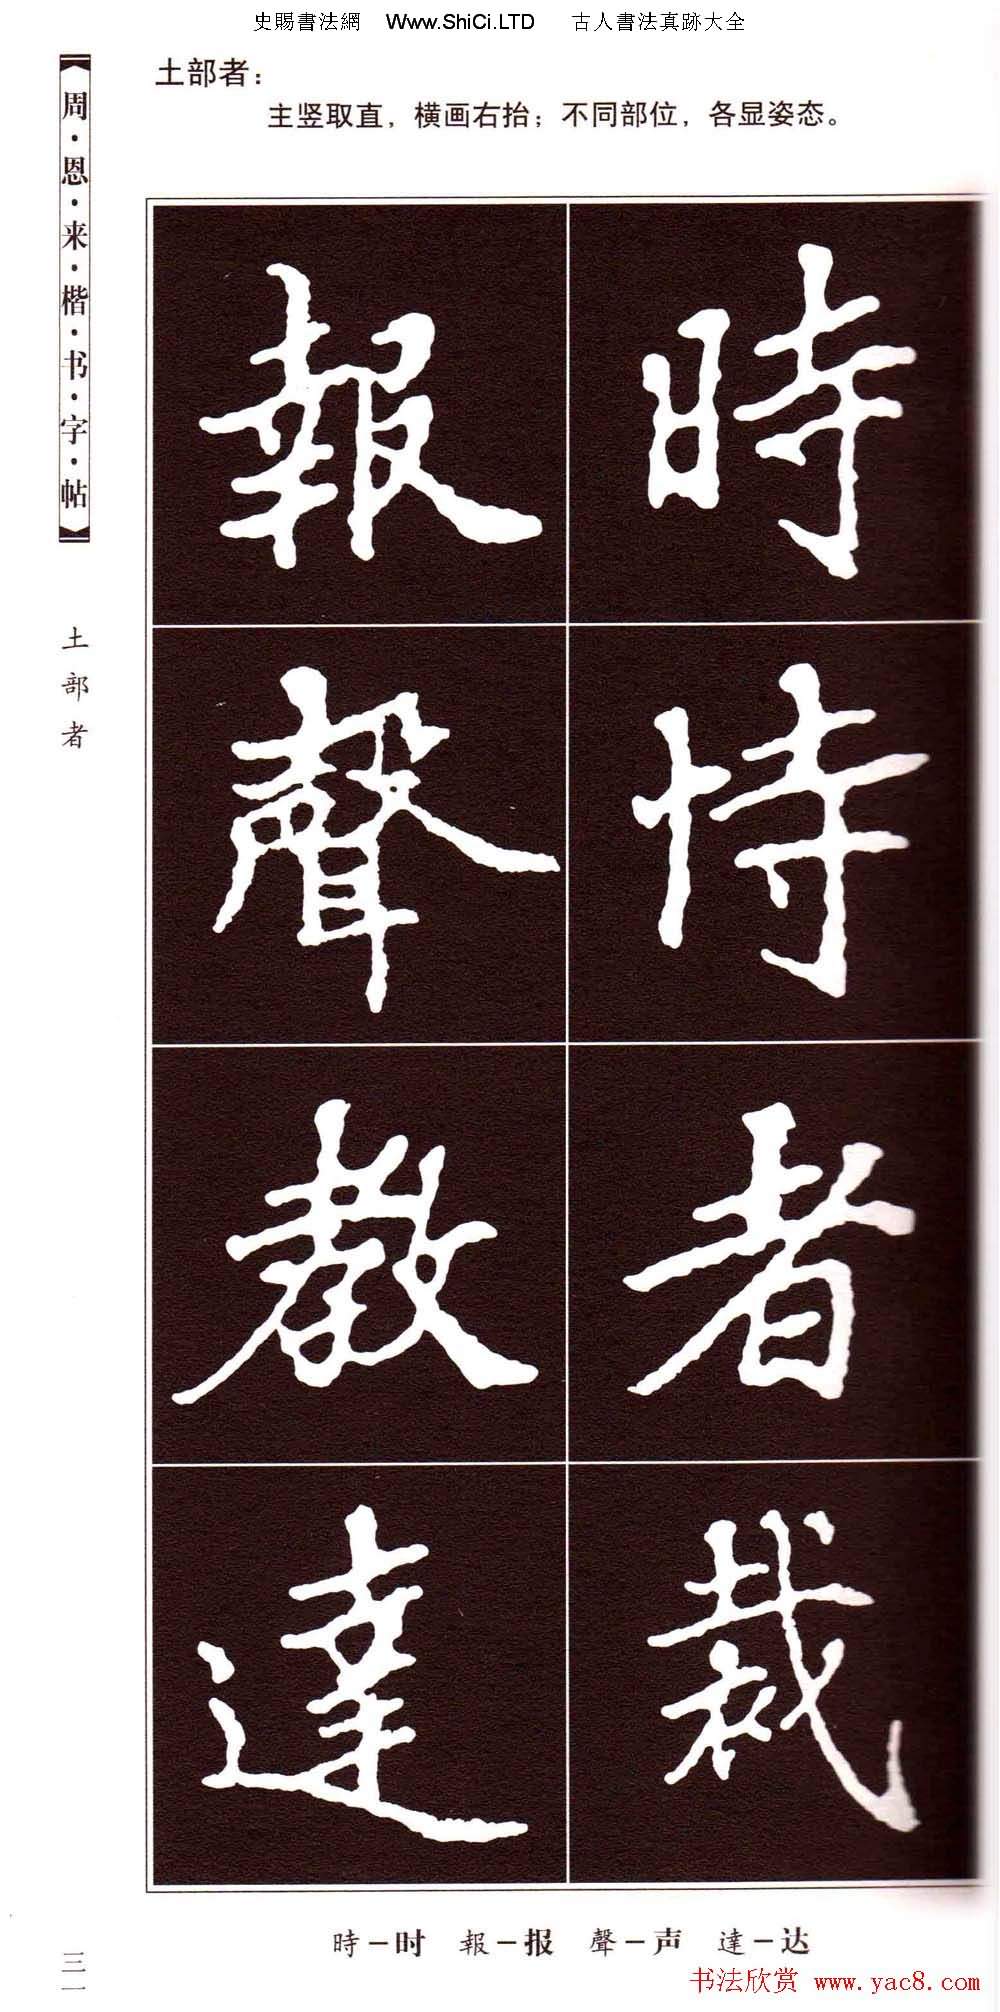 史賜書法網 Www.ShiCi.LTD 古人書法真跡大全
土部者：
主竖取直，横画右抬；不同部位，各显姿态。
【周·恩·来·楷·书·字·帖】
土部者
時
恃
者
裁
報
聲
教
達
時－时 報－报 聲－声 達－达
三一
书法欣赏 www.yac8.com